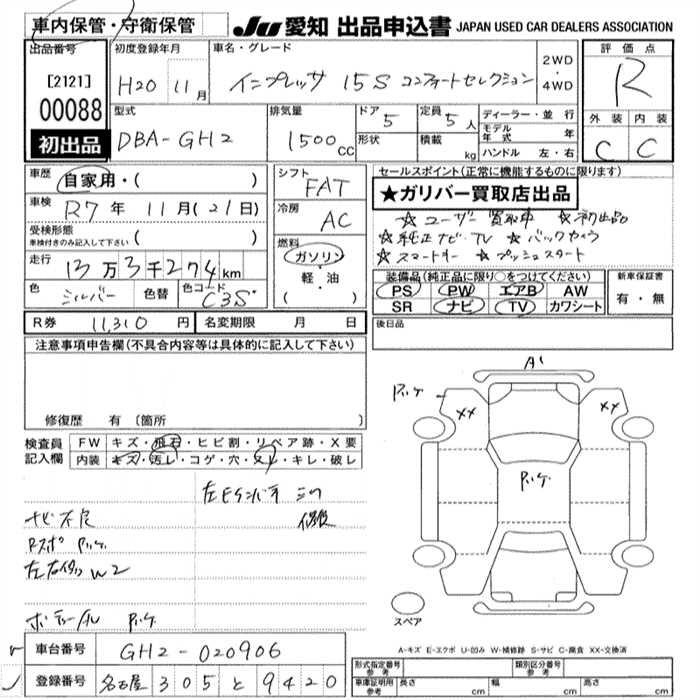 車内保管・守衛保管
JU 愛知 出品申込書 JAPAN USED CAR DEALERS ASSOCIATION
出品番号
[2121]
00088
初出品
初度登録年月
H20 11月
車名・グレード
インプレッサ 15S コンフォートセレクション
2WD
・
4WD
評価点
R
外装 内装
C C
型式
DBA-GH2
排気量
1500cc
ドア 5
形状
定員 5人
積載 kg
ディーラー・並行
モデル年式 年
ハンドル 左・右
車歴
自家用・( )
車検 R7年 11月(21日)
受検形態
車検付きのみ記入して下さい ( )
走行 13万3千274km
色 シルバー 色替 色コード C3S
R券 11,310円 名変期限 月 日
シフト
FAT
冷房
AC
燃料
ガソリン
軽・油
( )
セールスポイント(正常に機能するものに限ります)
★ガリバー買取店出品
☆ユーザー買取車 ☆初出品
☆純正ナビ・TV ☆バックカメラ
☆スマートキー ☆プッシュスタート
装備品(純正品に限り○をつけてください)
PS PW エアB AW
SR ナビ TV カワシート
新車保証書
有・無
後日品
注意事項申告欄(不具合内容等は具体的に記入して下さい)
修復歴 有 〔箇所 〕
検査員
記入欄
FW キズ・飛石・ヒビ割・リペア跡・X要
内装 キズ・汚レ・コゲ・穴・スレ・キレ・破レ
ナビ不良
修復
W2
A1
XX
XX
スペア
A-キズ E-エクボ U-凹み W-補修跡 S-サビ C-腐食 XX-交換済
車台番号 GH2-020906
登録番号 名古屋 305 と 9420
形式指定番号
参考
類別区分番号
参考
車庫証明用
参考
長さ cm 幅 cm 高さ cm